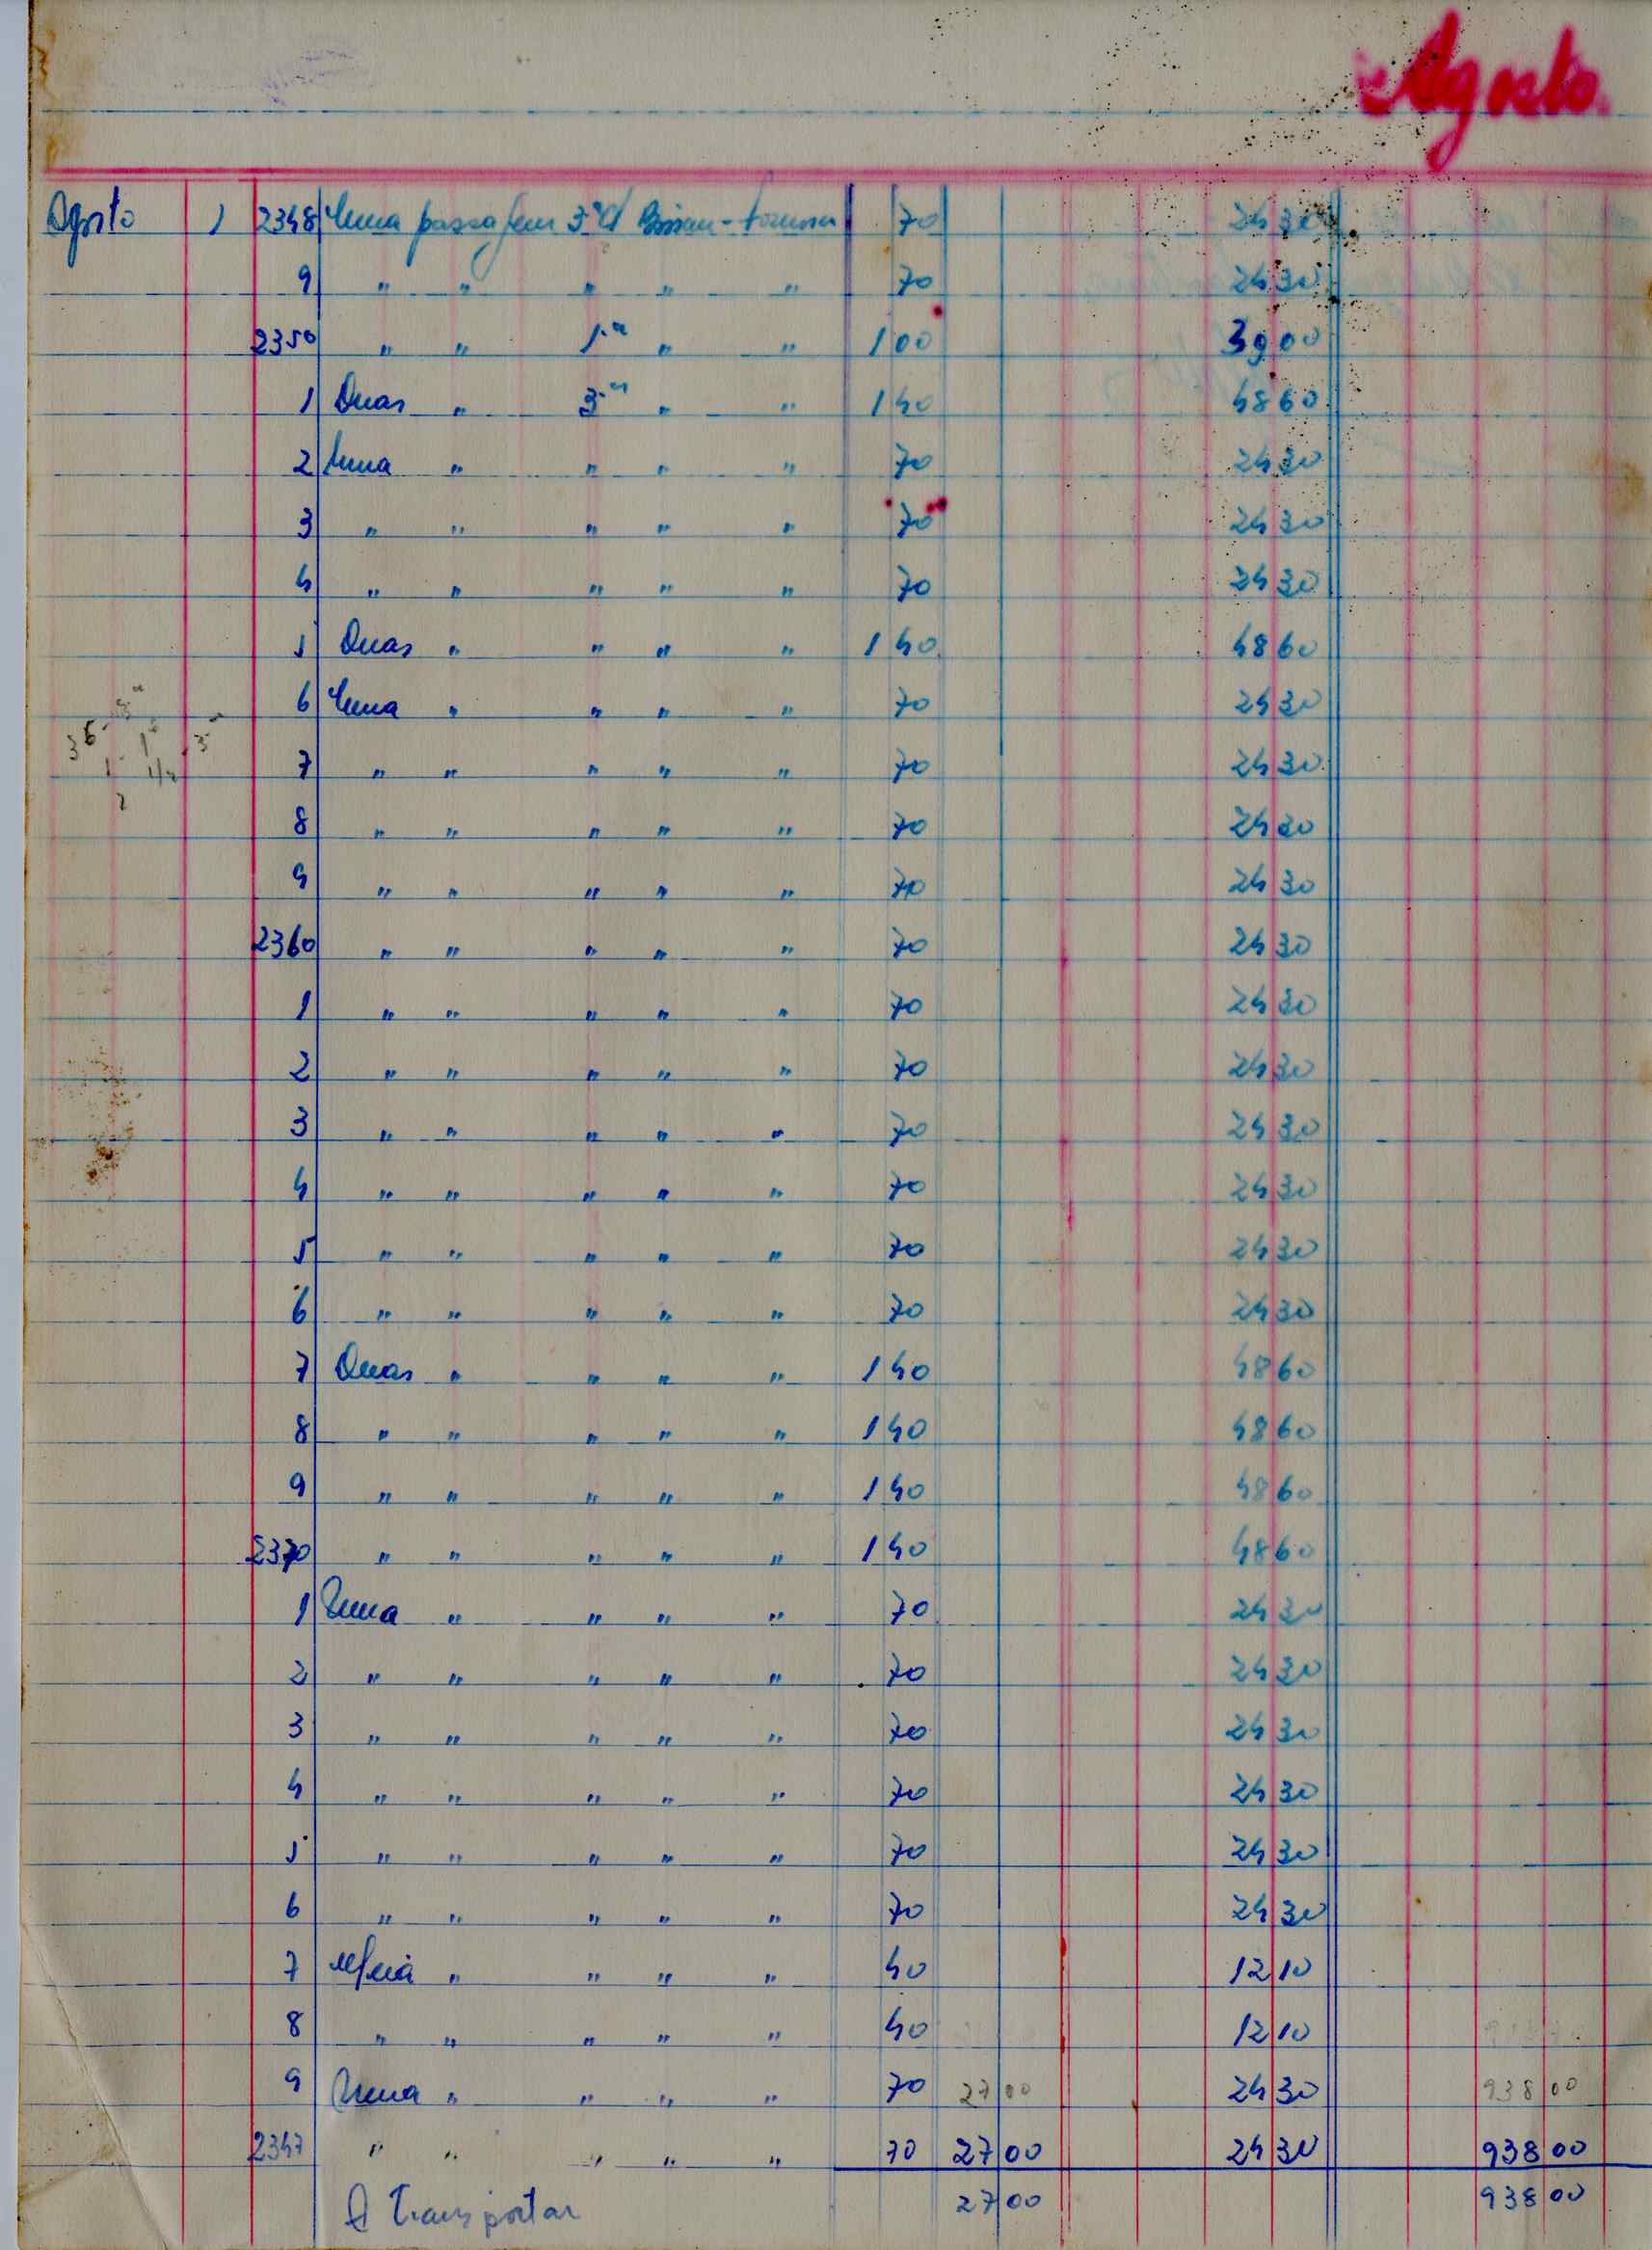 Agosto
Agosto 1 2348 Uma passagem 3ª cl Bissau - 70 24 30
9 " " " " " 70 24 30
2350 " " 1.ª " " 100 39 00
1 Duas " 3.ª " " 140 48 60
2 Uma " " " " 70 24 30
3 " " " " " 70 24 30
4 " " " " " 70 24 30
5 Duas " " " " 140 48 60
6 Uma " " " " 70 24 30
7 " " " " " 70 24 30
8 " " " " " 70 24 30
9 " " " " " 70 24 30
2360 " " " " " 70 24 30
1 " " " " " 70 24 30
2 " " " " " 70 24 30
3 " " " " " 70 24 30
4 " " " " " 70 24 30
5 " " " " " 70 24 30
6 " " " " " 70 24 30
7 Duas " " " " 140 48 60
8 " " " " " 140 48 60
9 " " " " " 140 48 60
2370 " " " " " 140 48 60
1 Uma " " " " 70 24 30
2 " " " " " 70 24 30
3 " " " " " 70 24 30
4 " " " " " 70 24 30
5 " " " " " 70 24 30
6 " " " " " 70 24 30
7 Meia " " " " 40 12 10
8 " " " " " 40 12 10
9 Uma " " " " 70 27 00 24 30 938 00
2347 " " " " " 70 27 00 24 30 938 00
A Transportar 27 00 938 00